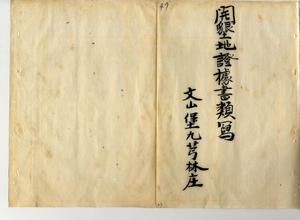 開墾地證據書類寫
文山堡九芎林庄
47